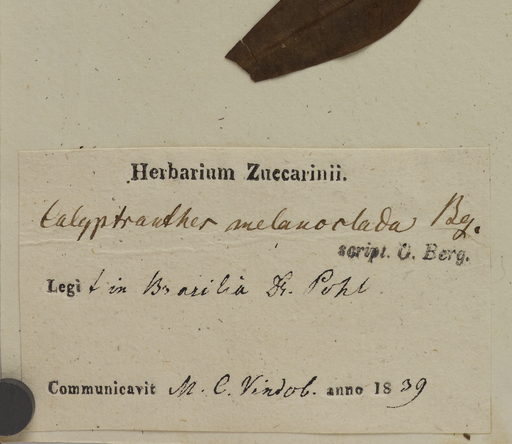 Herbarium Zuccarinii.
Calyptranthes melanoclada Bg.
script. O. Berg.
Legit in Brasilia Dr. Pohl
Communicavit M. C. Vindob. anno 1839